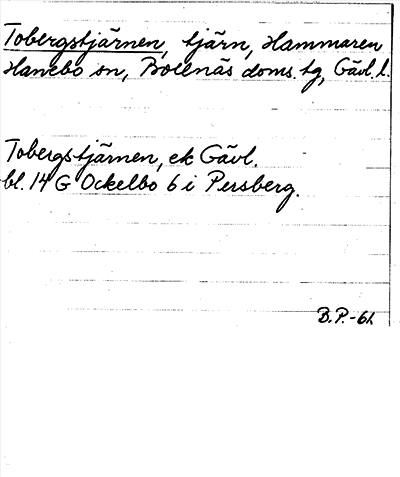 Tobergstjärnen, tjärn, Hammaren
Hanebo sn, Bollnäs doms.tg, Gävl. l.
Tobergstjärnen, ek Gävl.
bl. 14 G Ockelbo 6 i Persberg.
B.P.-61